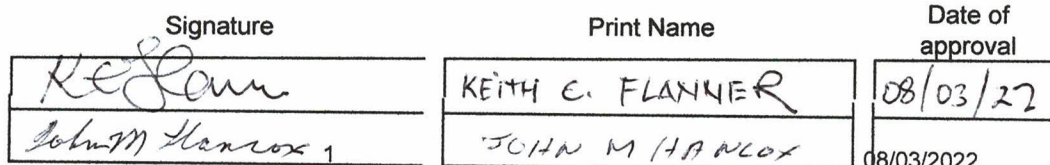 Signature Print Name Date of approval
KEITH C. FLANNER 08/03/22
John M Hancox 1 JOHN M HANCOX 08/03/2022